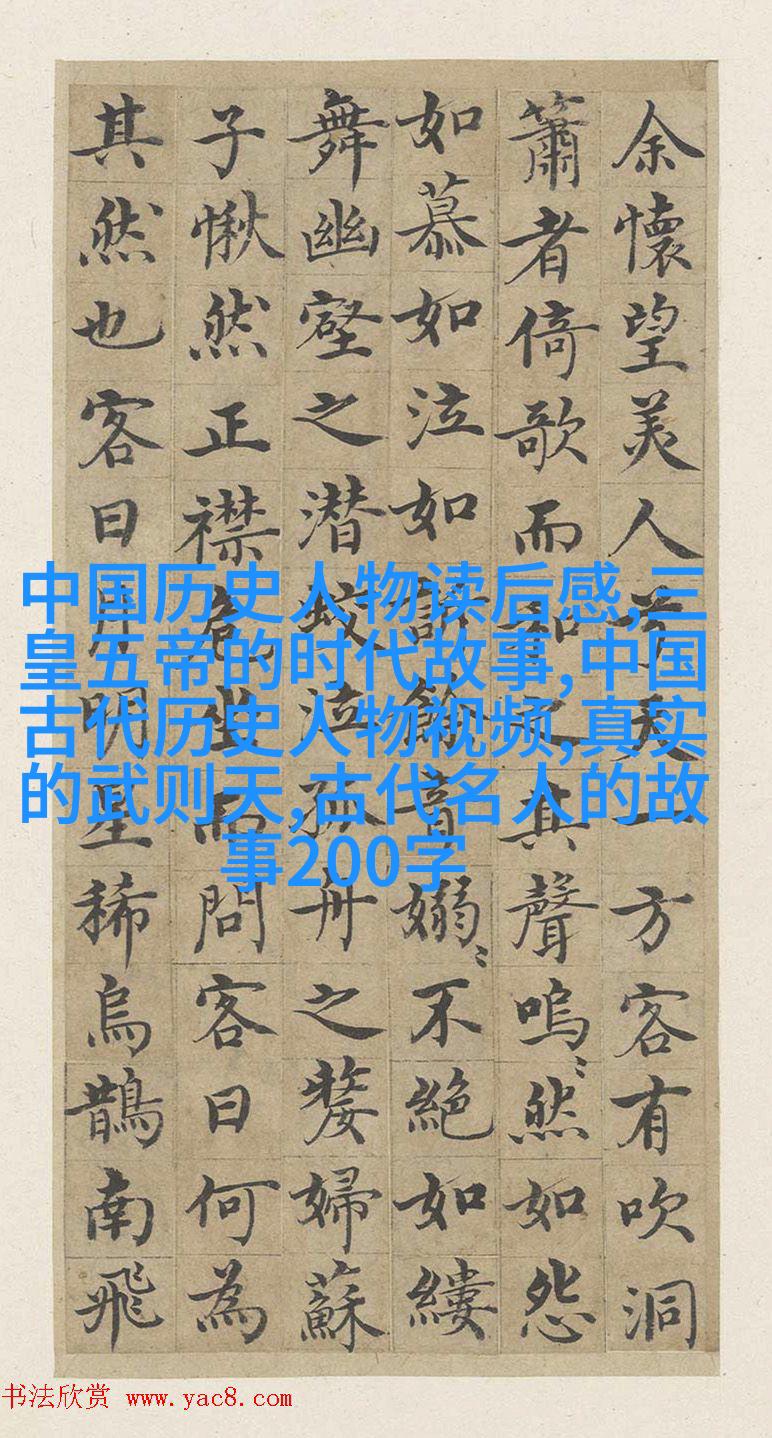 余懷望美人兮天一方客有吹洞
簫者倚歌而和之其聲嗚〻然如怨
如慕如泣如訴餘音嫋〻不絕如縷
舞幽壑之潜蛟泣孤舟之嫠婦蘇
子愀然正襟危坐而問客曰何為
其然也客曰月明星稀烏鵲南飛
中国历史人物读后感,三
皇五帝的时代故事,中国
古代历史人物视频,真实
的武则天,古代名人的故
事200字
书法欣赏 www.yac8.com